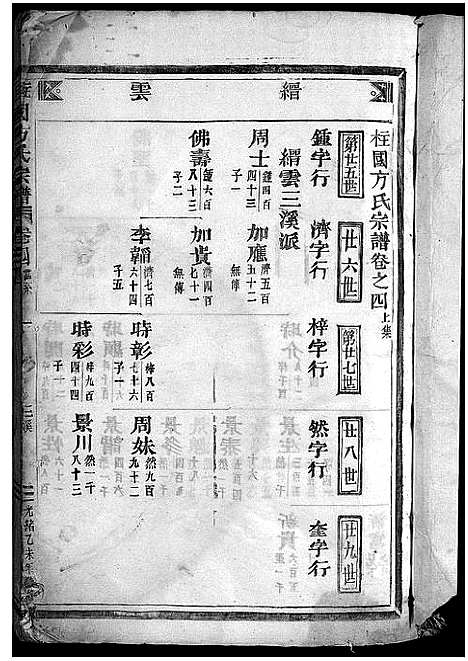 柱國方氏宗譜卷之四上集
縉雲
第廿五世
鍾字行
廿六世
濟字行
第廿七世
梓字行
廿八世
然字行
廿九世
奎字行
縉雲三溪派
周士 鍾四百四十三 子一
加應 濟五百五十二 無傳
佛壽 鍾六百八十三 子二
加貴 濟七百七十一 無傳
李韜 濟七百六十四 子五
時彰 梓八百七十六 子一
周妹 然九百九十二
時彩 梓九百四十四 子一
景川 然一千八十三
柱國方氏宗譜
光緒乙未年